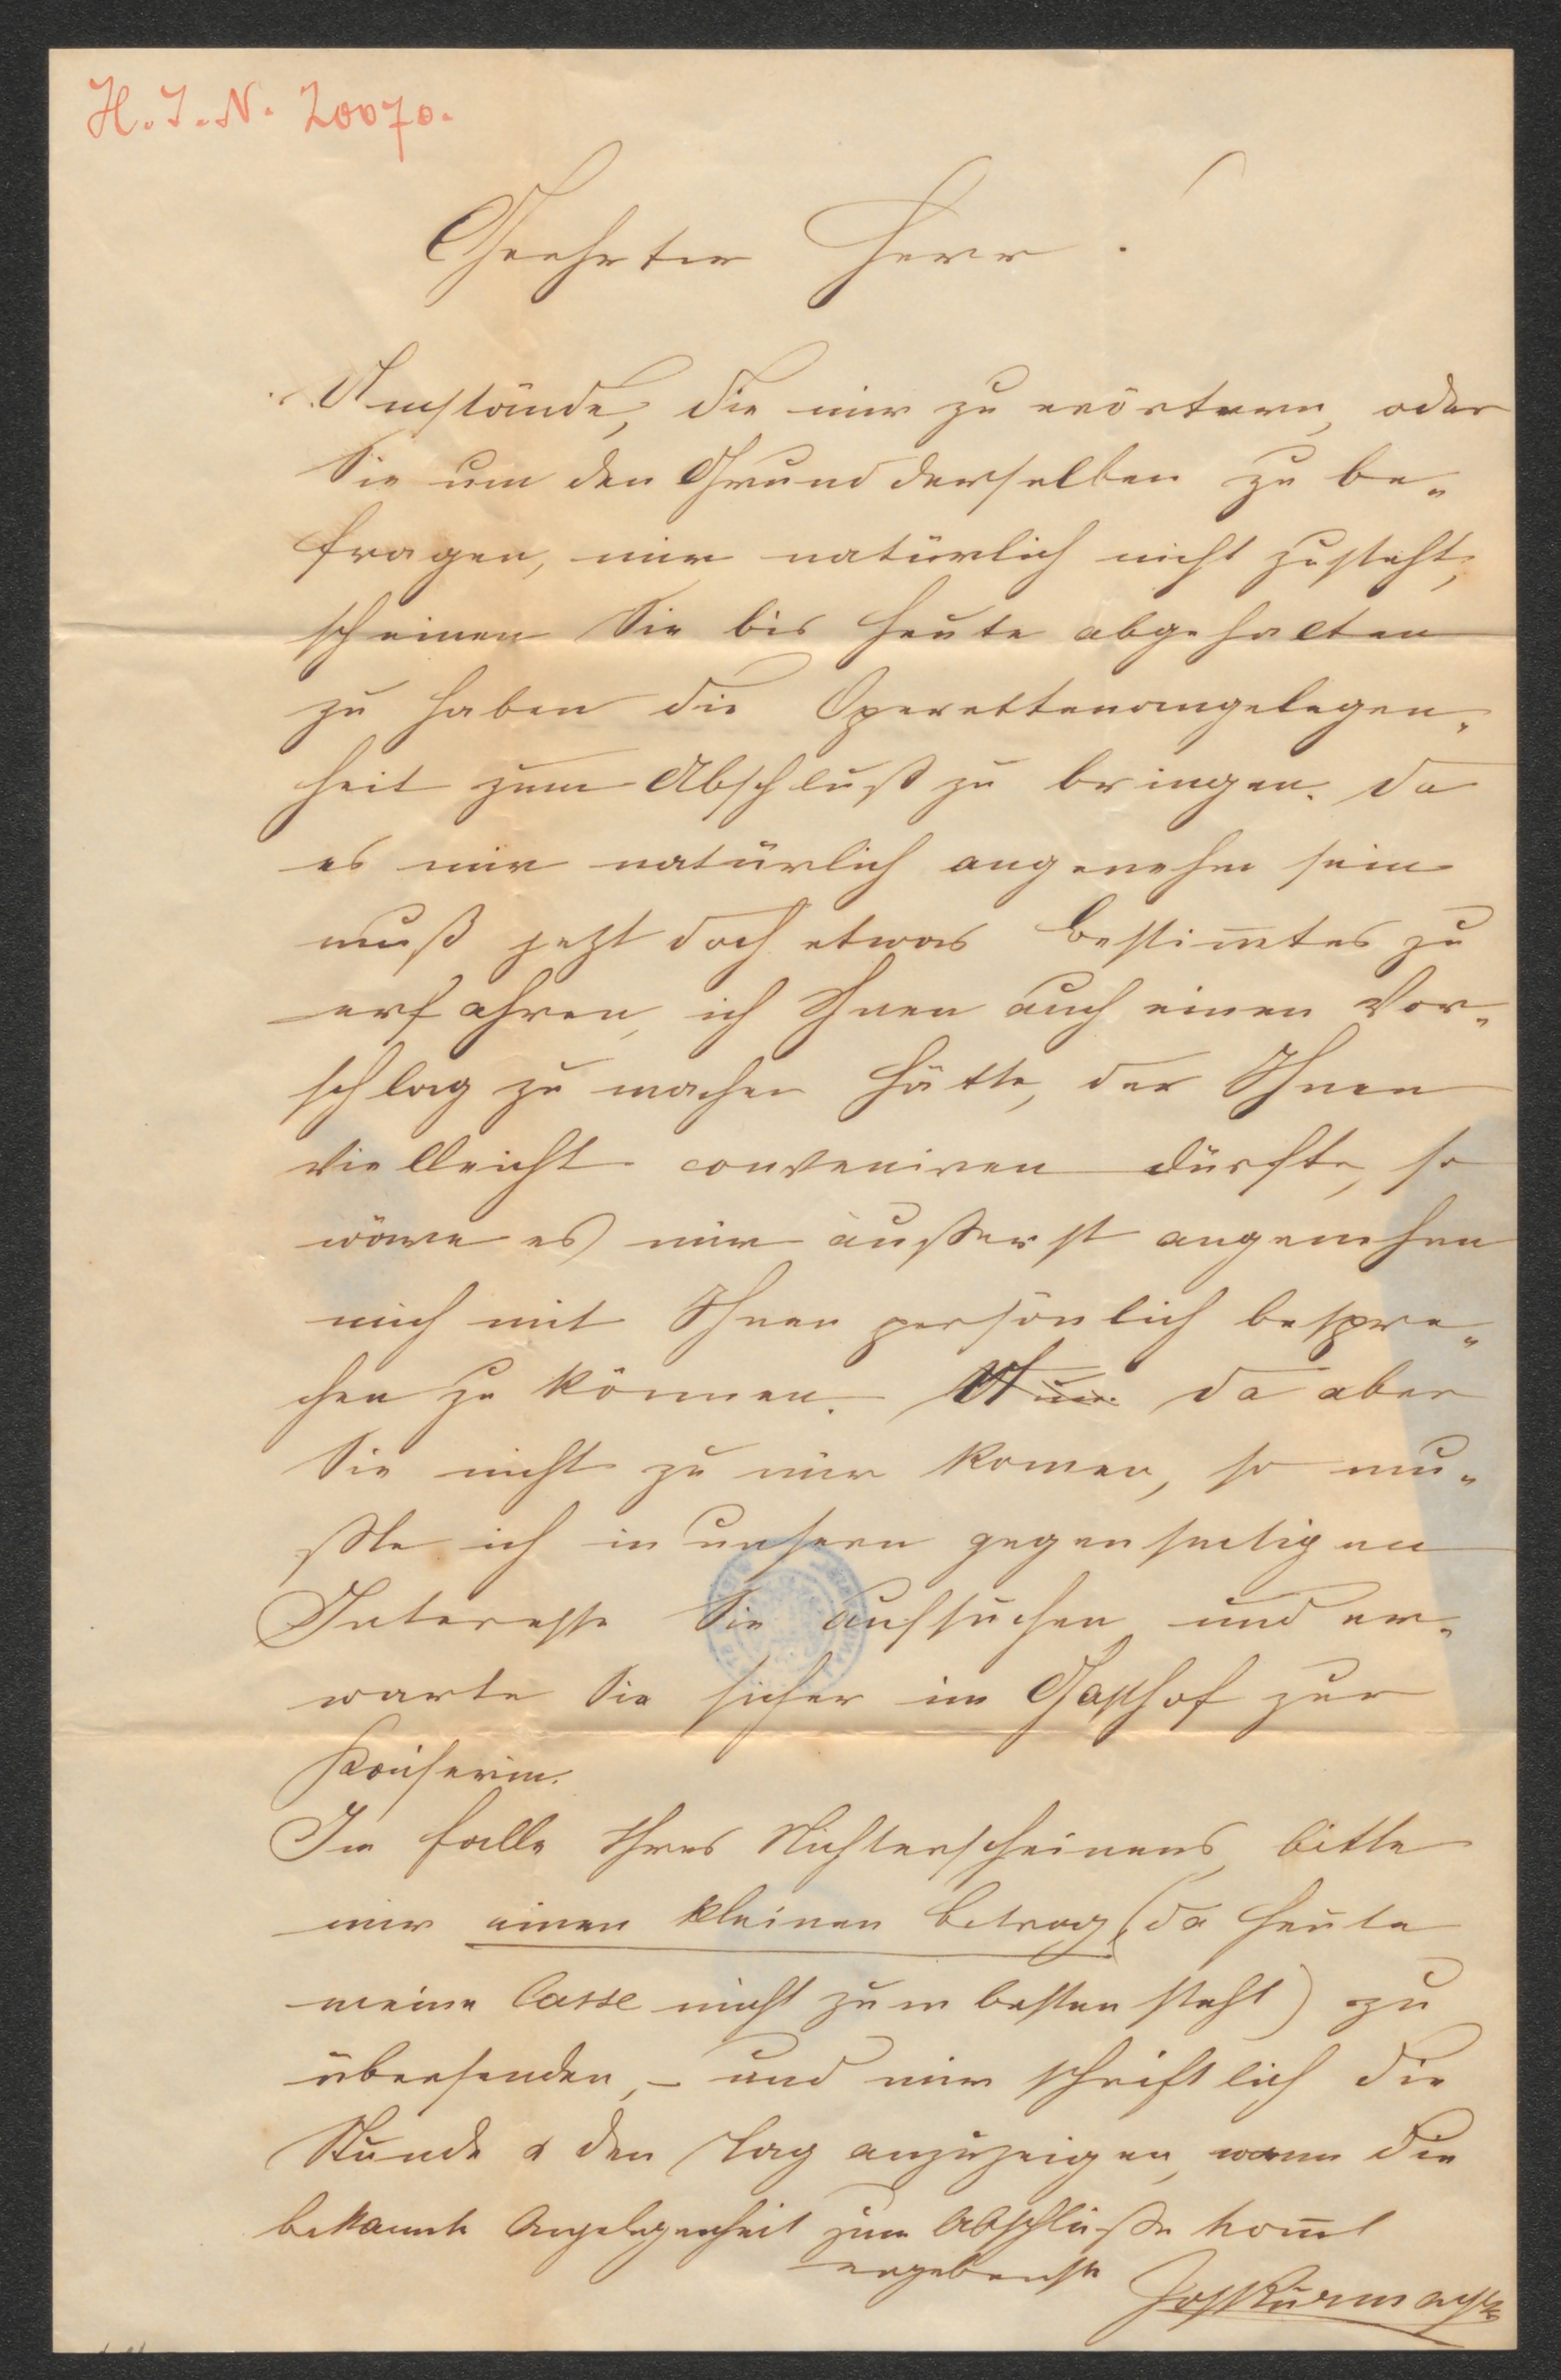 H. I. N. 20070.
Geehrter Herr!
Umstände, die mir zu erörtern, oder
Sie um den Grund derselben zu be-
fragen, mir natürlich nicht zusteht,
scheinen Sie bis heute abgehalten
zu haben die Operettenangelegen-
heit zum Abschluß zu bringen. Da
es mir natürlich angenehm sein
muß jezt doch etwas bestim̄tes zu
erfahren, ich Ihnen auch einen Vor-
schlag zu machen hätte, der Ihnen
vielleicht conveniren dürfte, so
wäre es mir äußerst angenehm
mich mit Ihnen persönlich bespre-
chen zu können. da aber
Sie nicht zu mir komen, so mu-
ßte ich in unsern gegenseitigen
Interesse Sie aufsuchen und er-
warte Sie sicher im Gasthof zur
Kaiserin.
Im falle Ihres Nichterscheinens, bitte
mir einen kleinen Betrag (da heute
meine Casse nicht zum besten steht) zu
übersenden, – und mir schriftlich die
Stunde & den Tag anzuzeigen, wann die
bekannte Angelegenheit zum Abschluße kom̄t
ergebenst